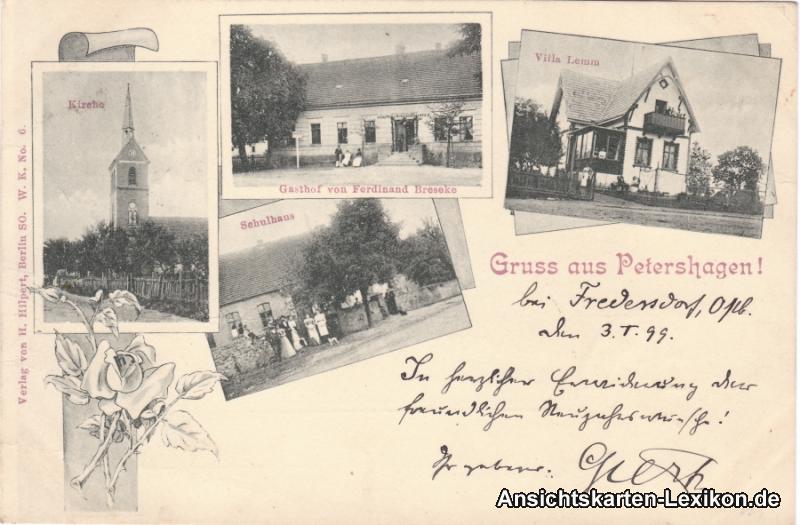 Verlag von H. Hilpert, Berlin SO. W. K. No. 6.
Kirche
Gasthof von Ferdinand Breseke
Villa Lemm
Schulhaus
Gruss aus Petershagen!
bei Fredersdorf, Ostb.
den 3. I. 99.
In herzlicher Erwiderung der
freundlichen Neujahrswünsche!
Ihr ergebener
Ansichtskarten-Lexikon.de